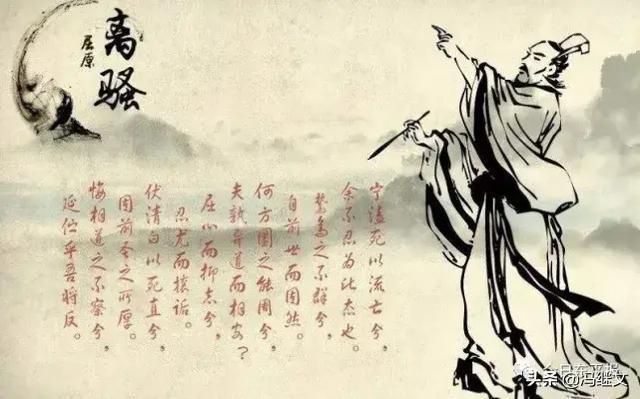 离骚
屈原
宁溘死以流亡兮,
余不忍为此态也。
鸷鸟之不群兮,
自前世而固然。
何方圜之能周兮,
夫孰异道而相安?
屈心而抑志兮,
忍尤而攘诟。
伏清白以死直兮,
固前圣之所厚。
悔相道之不察兮,
延伫乎吾将反。
头条 @冯继文